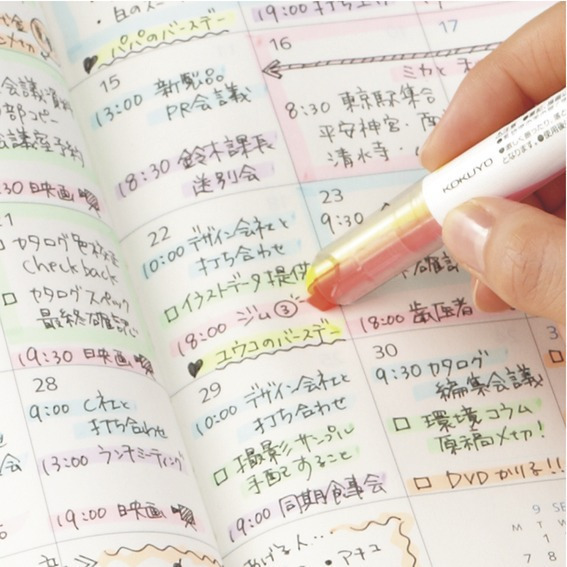 パパのバースデー
19:00 打ち上げ
会議資料
部コピー
会議室予約
:30 映画
15
13:00 新製品
PR会議
18:30 鈴木課長
送別会
16
17
ミカと
8:30 東京駅集合
平安神宮・
清水寺・
KOKUYO
カタログ
check back
カタログスペック
最終確認
19:30 映画
22
10:00 デザイン会社と
打ち合わせ
イラストデータ提供
18:00 ジム③
ユウコのバースデー
23
9:30
18:00 歯医者
28
9:00 C社と
打ち合わせ
13:00 ランチミーティング
19:00 映画
29
10:00 デザイン会社と
打ち合わせ
撮影サンプル
手配すること
19:00 同期食事会
30
9:30 カタログ
編集会議
環境コラム
原稿〆切!
DVDかりる!!
あげる人…
・アキコ
9 SE
M T W
1
7 8